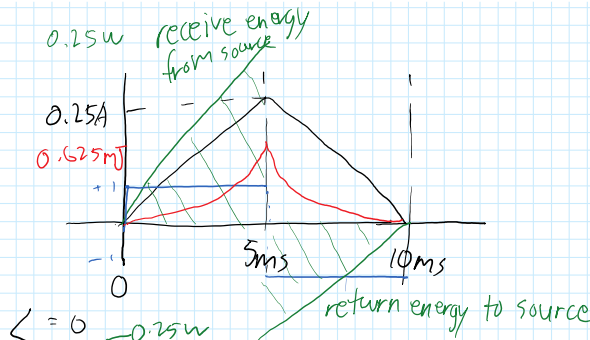 0.25w
receive energy
from source
0.25A
0.625mJ
+1
5ms
10ms
-1
0
return energy to source
L = 0
-0.25w